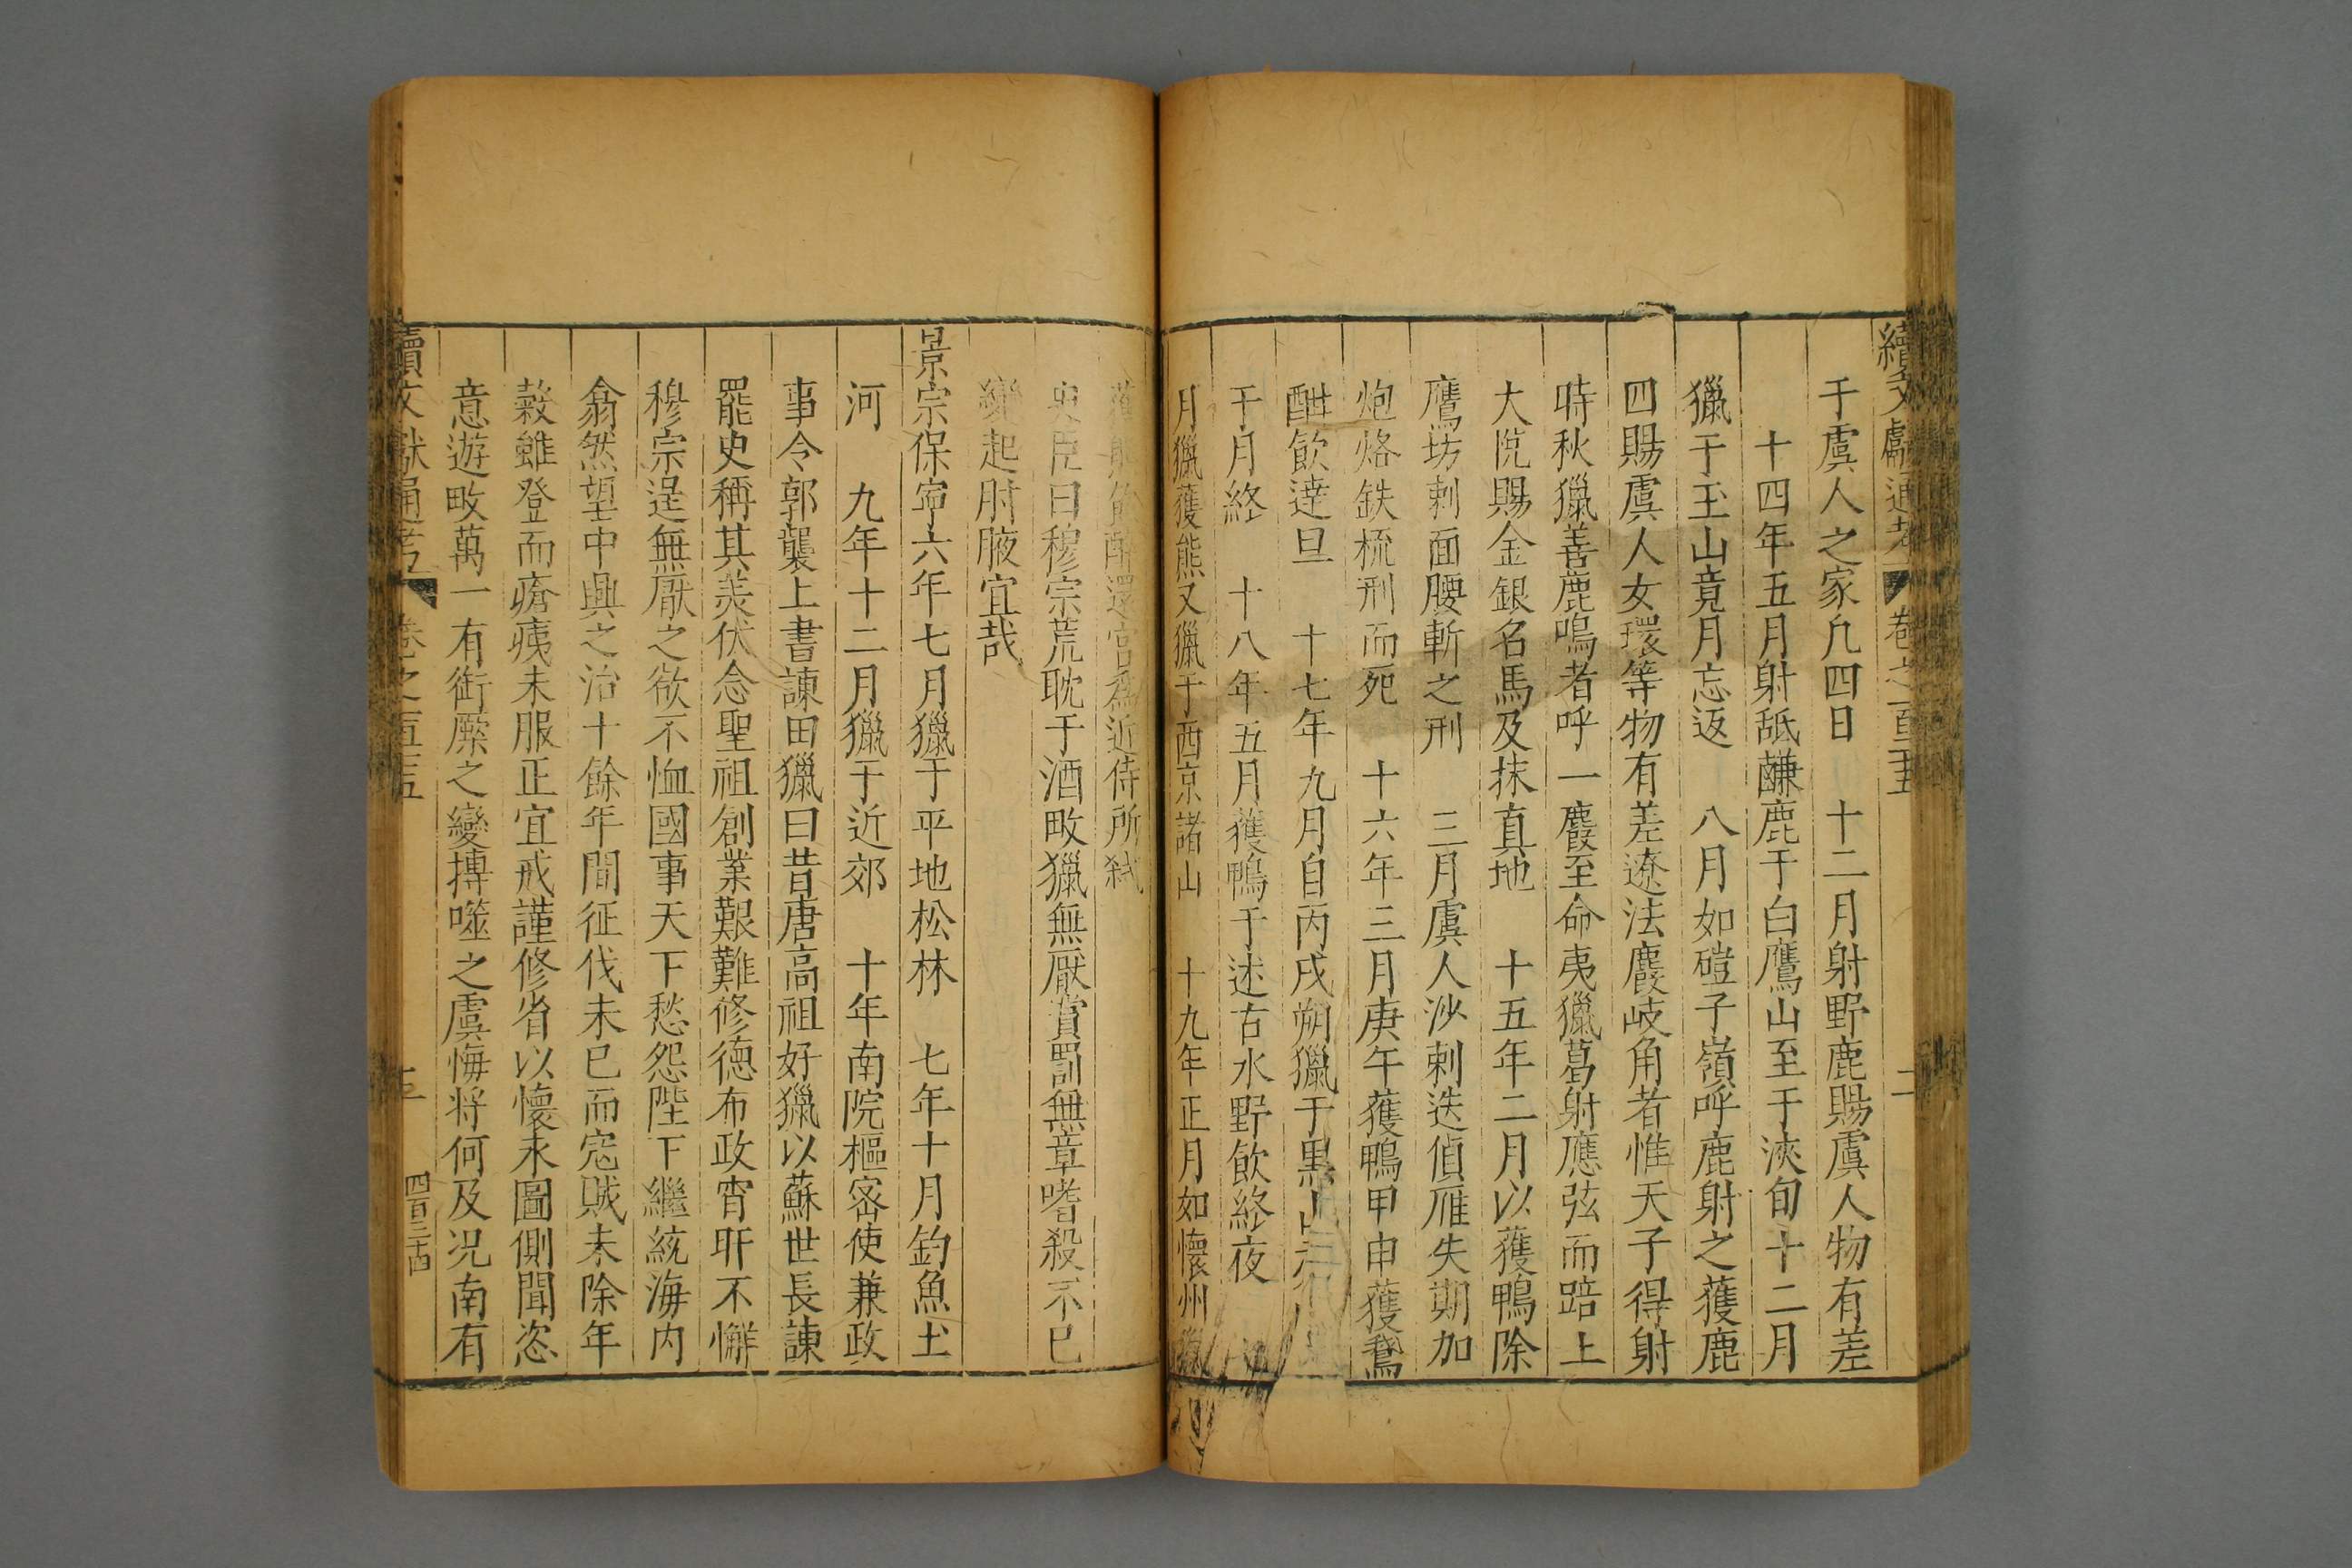 續文獻通考 卷之一百五 二
于虞人之家凢四日 十二月射野鹿賜虞人物有差
十四年五月射舐鹻鹿于白鷹山至于浹旬十二月
獵于玉山竟月忘返 八月如磑子嶺呼鹿射之獲鹿
四賜虞人女瓌等物有差遼法麚岐角者惟天子得射
時秋獵善鹿鳴者呼一麚至命夷獵葛射應弦而踣上
大悅賜金銀名馬及抹真地 十五年二月以獲鴨除
鷹坊刺面腰斬之刑 三月虞人沙剌迭偵雁失期加
炮烙鉄梳刑而死 十六年三月庚午獲鴨甲申獲鵞
酣飲達旦 十七年九月自丙戌朔獵于黑山
于月終 十八年五月獲鴨于述古水野飲終夜
月獵獲熊又獵于西京諸山 十九年正月如懷州獵
獲熊飲酣還宮為近侍所弑
史臣曰穆宗荒耽于酒畋獵無厭賞罰無章嗜殺不已
變起肘腋宜哉
景宗保寧六年七月獵于平地松林 七年十月釣魚土
河 九年十二月獵于近郊 十年南院樞密使兼政
事令郭襲上書諫田獵曰昔唐高祖好獵以蘇世長諫
罷史稱其羙伏念聖祖創業艱難修德布政宵旰不懈
穆宗逞無厭之欲不恤國事天下愁怨陛下繼統海内
翕然望中興之治十餘年間征伐未已而寇賊未除年
穀雖登而瘡痍未服正宜戒謹修省以懷永圖側聞恣
意遊畋萬一有銜橜之變搏噬之虞悔将何及况南有
續文獻通考 卷之一百五 三 四百三十四